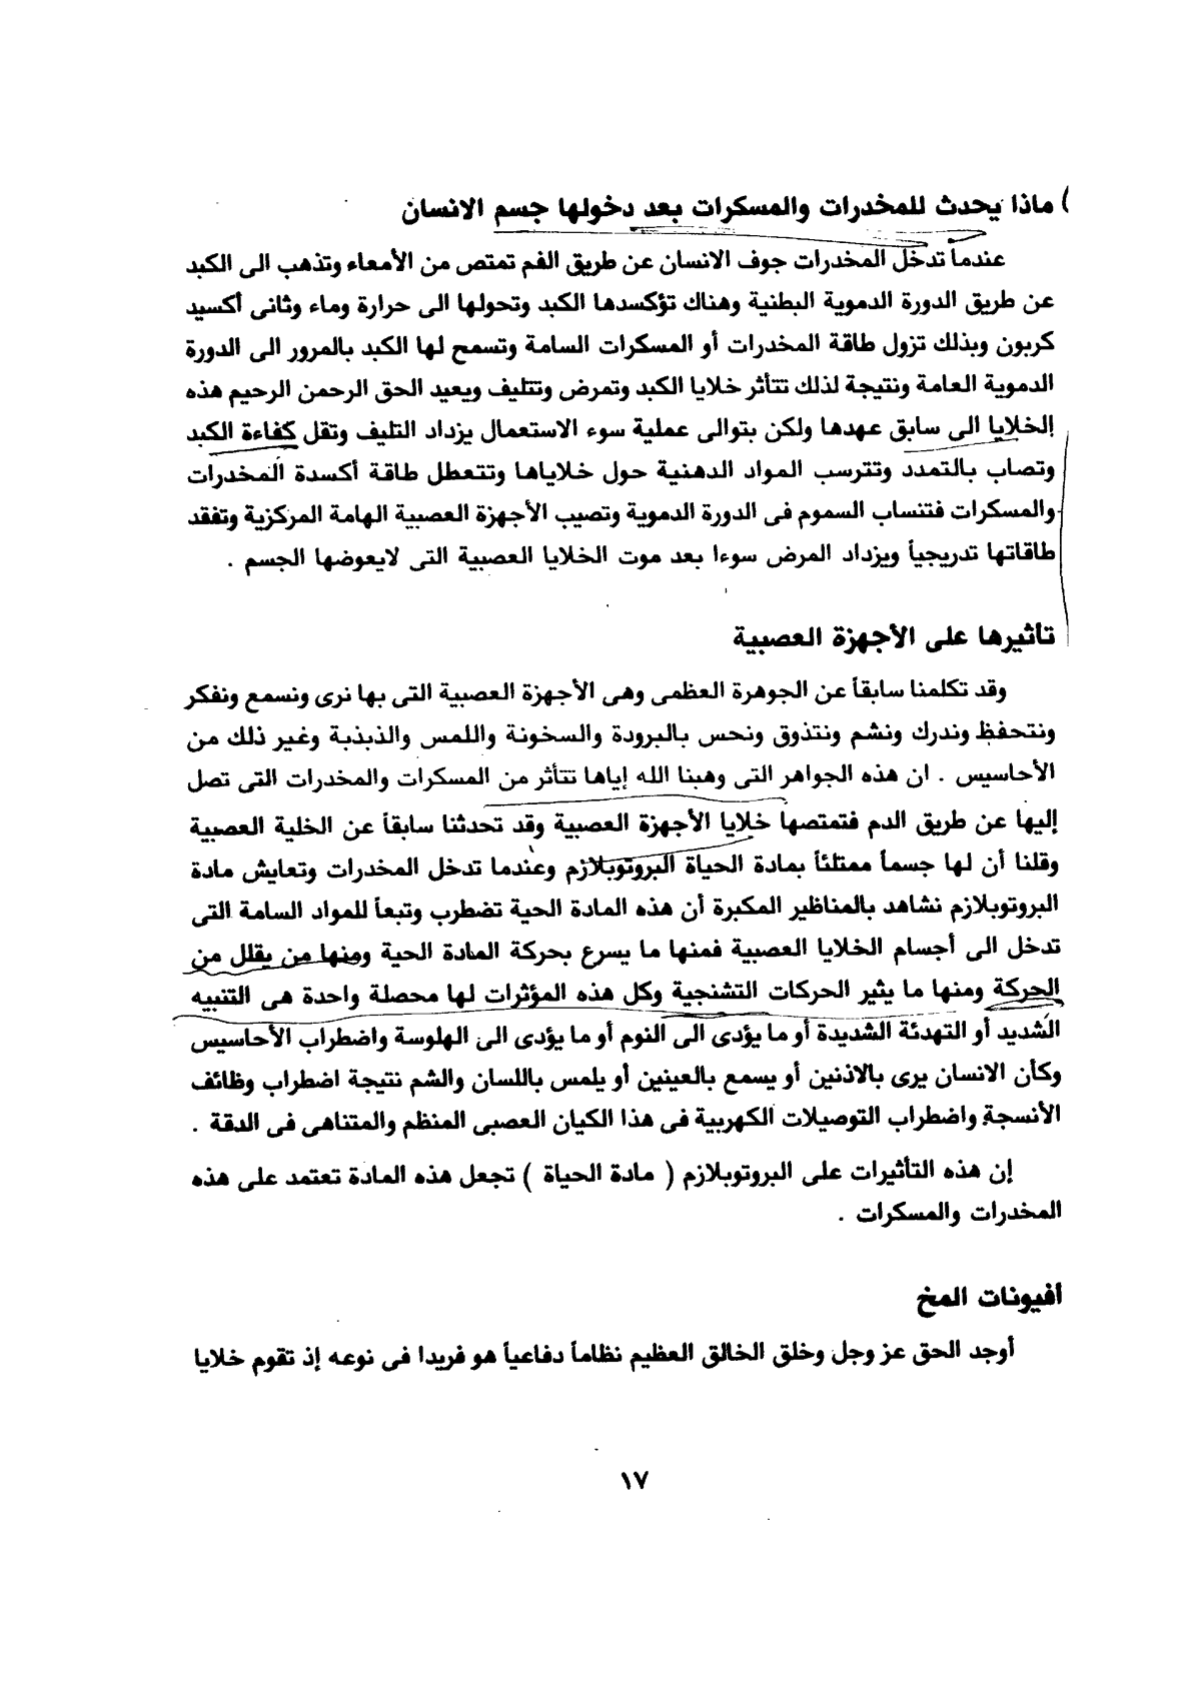 ماذا يحدث للمخدرات والمسكرات بعد دخولها جسم الانسان
عندما تدخل المخدرات جوف الانسان عن طريق الفم تمتص من الأمعاء وتذهب الى الكبد
عن طريق الدورة الدموية البطنية وهناك تؤكسدها الكبد وتحولها الى حرارة وماء وثانى أكسيد
كربون وبذلك تزول طاقة المخدرات أو المسكرات السامة وتسمح لها الكبد بالمرور الى الدورة
الدموية العامة ونتيجة لذلك تتأثر خلايا الكبد وتمرض وتتليف ويعيد الحق الرحمن الرحيم هذه
الخلايا الى سابق عهدها ولكن بتوالى عملية سوء الاستعمال يزداد التليف وتقل كفاءة الكبد
وتصاب بالتمدد وتترسب المواد الدهنية حول خلاياها وتتعطل طاقة أكسدة المخدرات
والمسكرات فتنساب السموم فى الدورة الدموية وتصيب الأجهزة العصبية الهامة المركزية وتفقد
طاقاتها تدريجياً ويزداد المرض سوءا بعد موت الخلايا العصبية التى لايعوضها الجسم .
تأثيرها على الأجهزة العصبية
وقد تكلمنا سابقاً عن الجوهرة العظمى وهى الأجهزة العصبية التى بها نرى ونسمع ونفكر
ونتحفظ وندرك ونشم ونتذوق ونحس بالبرودة والسخونة واللمس والذبذبة وغير ذلك من
الأحاسيس . ان هذه الجواهر التى وهبنا الله إياها تتأثر من المسكرات والمخدرات التى تصل
إليها عن طريق الدم فتمتصها خلايا الأجهزة العصبية وقد تحدثنا سابقاً عن الخلية العصبية
وقلنا أن لها جسماً ممتلئاً بمادة الحياة البروتوبلازم وعندما تدخل المخدرات وتعايش مادة
البروتوبلازم نشاهد بالمناظير المكبرة أن هذه المادة الحية تضطرب وتبعاً للمواد السامة التى
تدخل الى أجسام الخلايا العصبية فمنها ما يسرع بحركة المادة الحية ومنها من يقلل من
الحركة ومنها ما يثير الحركات التشنجية وكل هذه المؤثرات لها محصلة واحدة هى التنبيه
الشديد أو التهدئة الشديدة أو ما يؤدى الى النوم أو ما يؤدى الى الهلوسة واضطراب الأحاسيس
وكأن الانسان يرى بالاذنين أو يسمع بالعينين أو يلمس باللسان والشم نتيجة اضطراب وظائف
الأنسجة واضطراب التوصيلات الكهربية فى هذا الكيان العصبى المنظم والمتناهى فى الدقة .
إن هذه التأثيرات على البروتوبلازم ( مادة الحياة ) تجعل هذه المادة تعتمد على هذه
المخدرات والمسكرات .
أفيونات المخ
أوجد الحق عز وجل وخلق الخالق العظيم نظاماً دفاعياً هو فريدا فى نوعه إذ تقوم خلايا
١٧